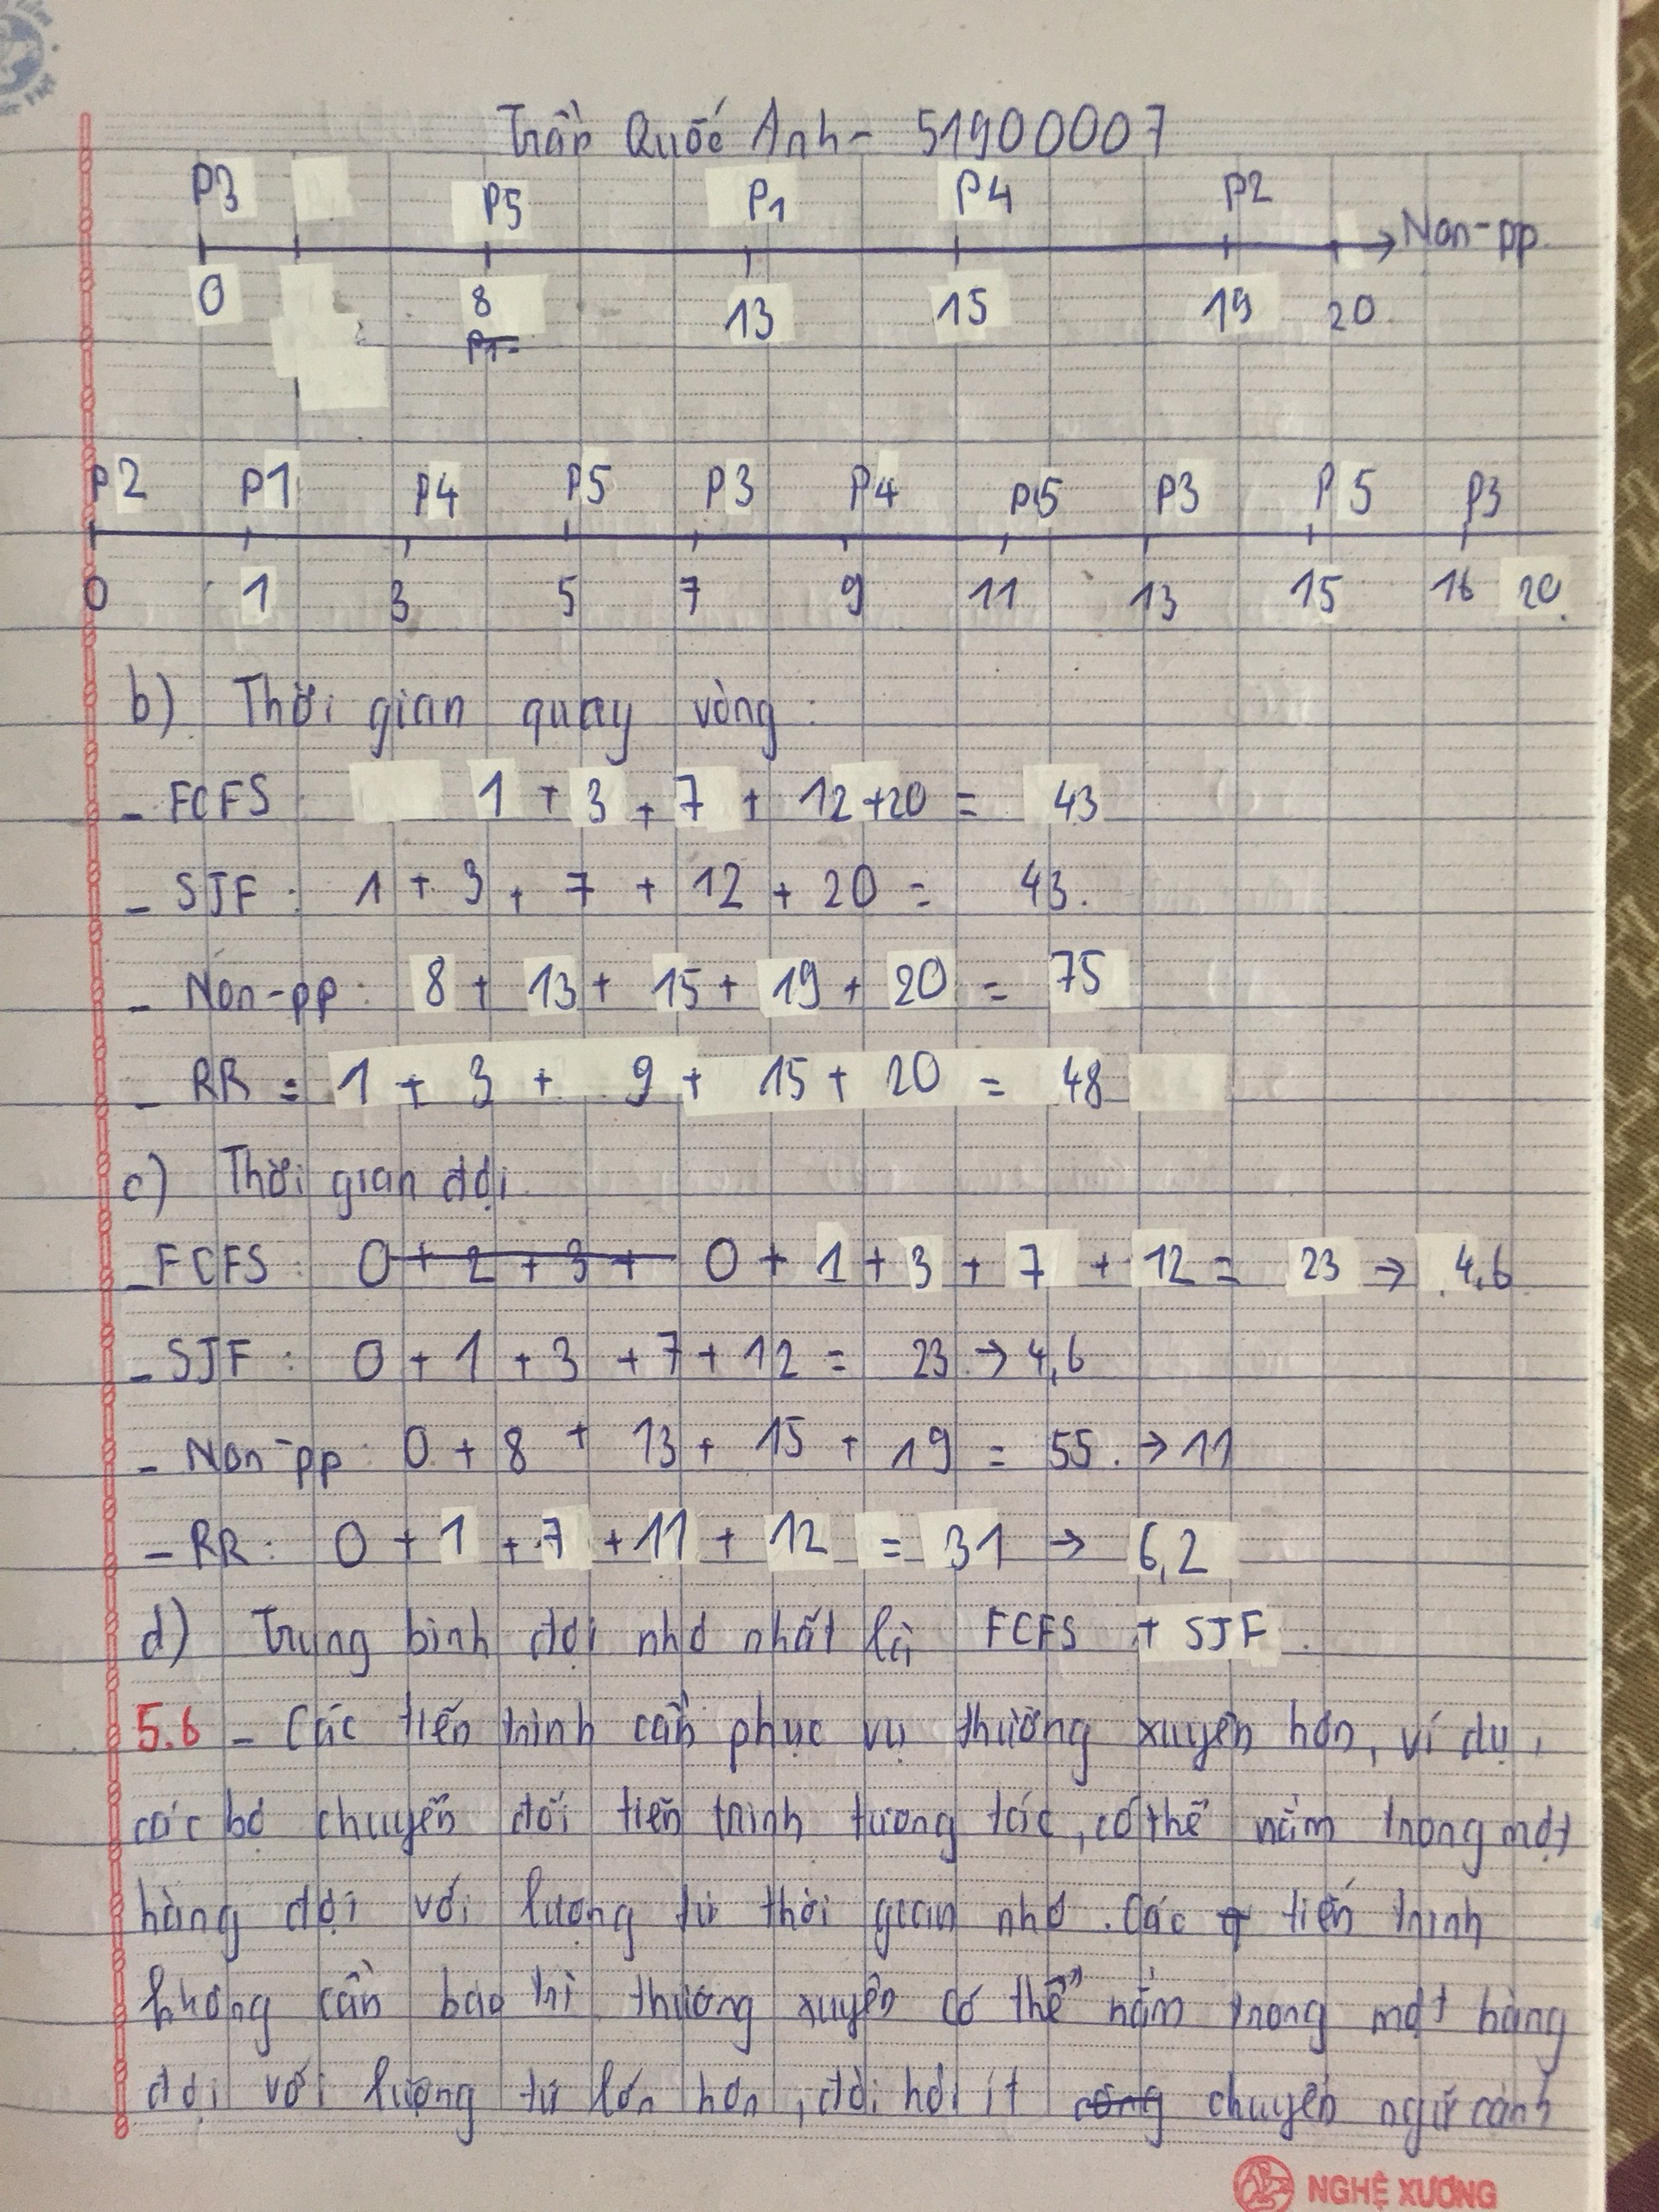 Trần Quốc Anh - 51900007
P3 P5 P1 P4 P2
Non-pp
0 8 13 15 19 20
P1
P2 P1 P4 P5 P3 P4 P5 P3 P5 P3
0 1 3 5 7 9 11 13 15 16 20
b) Thời gian quay vòng:
- FCFS 1 + 3 + 7 + 12 + 20 = 43
- SJF: 1 + 3 + 7 + 12 + 20 = 43.
- Non-pp: 8 + 13 + 15 + 19 + 20 = 75
- RR = 1 + 3 + 9 + 15 + 20 = 48
c) Thời gian đợi
- FCFS: 0 + 2 + 3 + 0 + 1 + 3 + 7 + 12 = 23 → 4,6
- SJF: 0 + 1 + 3 + 7 + 12 = 23 → 4,6
- Non-pp: 0 + 8 + 13 + 15 + 19 = 55 → 11
- RR: 0 + 1 + 7 + 11 + 12 = 31 → 6,2
d) Trung bình đợi nhỏ nhất là FCFS + SJF.
5.6 - Các tiến trình cần phục vụ thường xuyên hơn, ví dụ,
các bộ chuyển đổi tiến trình tương tác, có thể nằm trong một
hàng đợi với lượng tử thời gian nhỏ. Các tiến trình
không cần bảo trì thường xuyên có thể nằm trong một hàng
đợi với lượng tử lớn hơn, đòi hỏi ít công chuyển ngữ cảnh
NGHỆ XƯƠNG